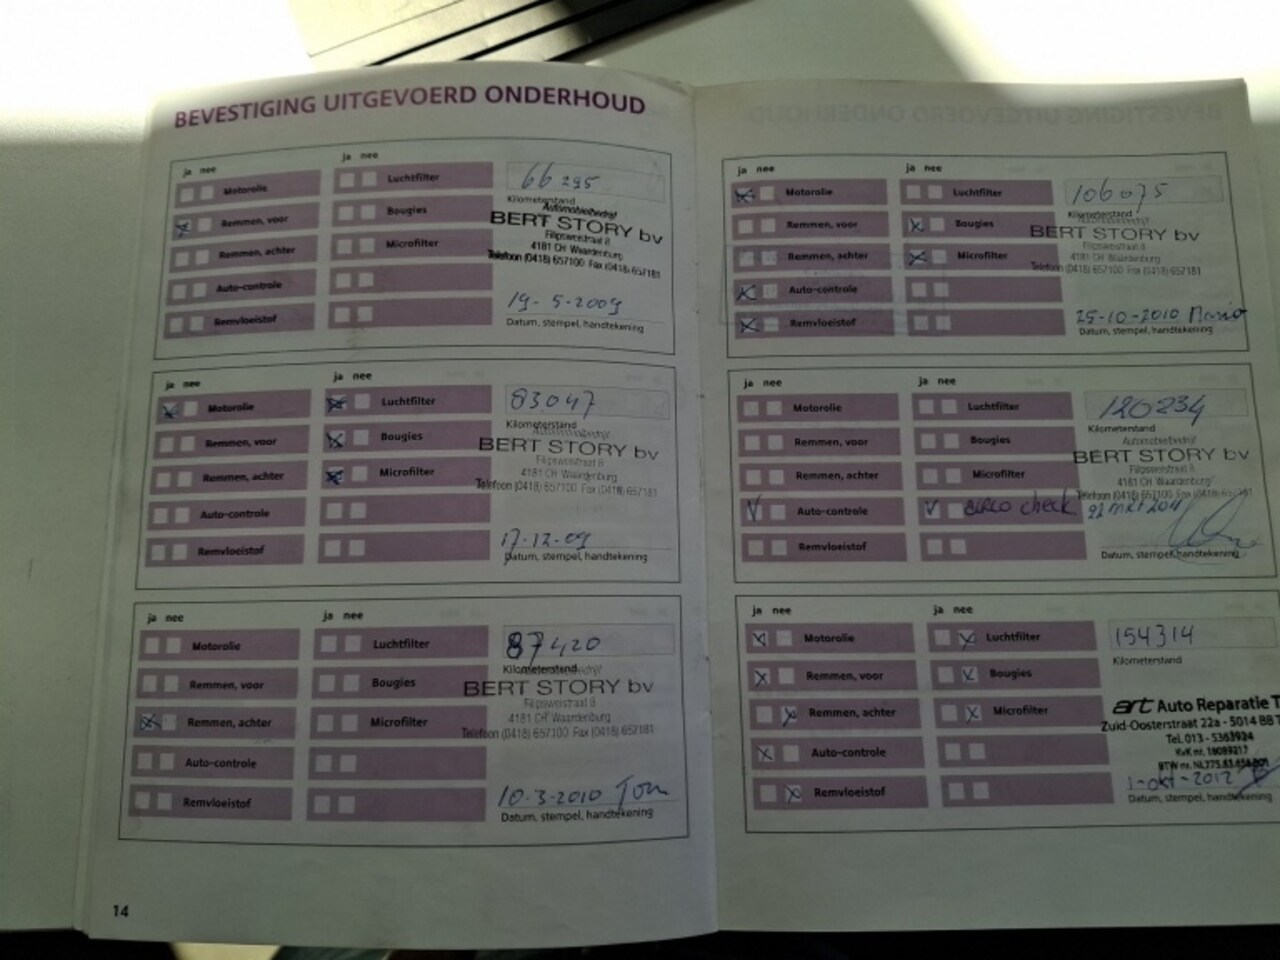 BEVESTIGING UITGEVOERD ONDERHOUD
ja nee ja nee
Motorolie Luchtfilter 66295
Kilometerstand
Remmen, voor Bougies Automobielbedrijf
BERT STORY bv
Filipsweistraat 8
Remmen, achter Microfilter 4181 CH Waardenburg
Telefoon (0418) 657100 Fax (0418) 657181
Auto-controle 19-5-2009
Remvloeistof Datum, stempel, handtekening
ja nee ja nee
Motorolie Luchtfilter 83047
Kilometerstand
Remmen, voor Bougies Automobielbedrijf
BERT STORY bv
Filipsweistraat 8
Remmen, achter Microfilter 4181 CH Waardenburg
Telefoon (0418) 657100 Fax (0418) 657181
Auto-controle 17-12-09
Remvloeistof Datum, stempel, handtekening
ja nee ja nee
Motorolie Luchtfilter 87420
Kilometerstand
Remmen, voor Bougies Automobielbedrijf
BERT STORY bv
Filipsweistraat 8
Remmen, achter Microfilter 4181 CH Waardenburg
Telefoon (0418) 657100 Fax (0418) 657181
Auto-controle 10-3-2010 Tom
Remvloeistof Datum, stempel, handtekening
14
ja nee ja nee
Motorolie Luchtfilter 106075
Kilometerstand
Remmen, voor Bougies Automobielbedrijf
BERT STORY bv
Filipsweistraat 8
Remmen, achter Microfilter 4181 CH Waardenburg
Telefoon (0418) 657100 Fax (0418) 657181
Auto-controle 25-10-2010 Mario
Remvloeistof Datum, stempel, handtekening
ja nee ja nee
Motorolie Luchtfilter 120234
Kilometerstand
Remmen, voor Bougies Automobielbedrijf
BERT STORY bv
Filipsweistraat 8
Remmen, achter Microfilter 4181 CH Waardenburg
Telefoon (0418) 657100 Fax (0418) 657181
Auto-controle check 22 mrt 2011
Remvloeistof Datum, stempel, handtekening
ja nee ja nee
Motorolie Luchtfilter 154314
Kilometerstand
Remmen, voor Bougies
art Auto Reparatie T
Remmen, achter Microfilter Zuid-Oosterstraat 22a - 5014 BB T
Tel. 013 - 5363924
Auto-controle KvK nr. 18089217
BTW nr.
1-okt-2012
Remvloeistof Datum, stempel, handtekening